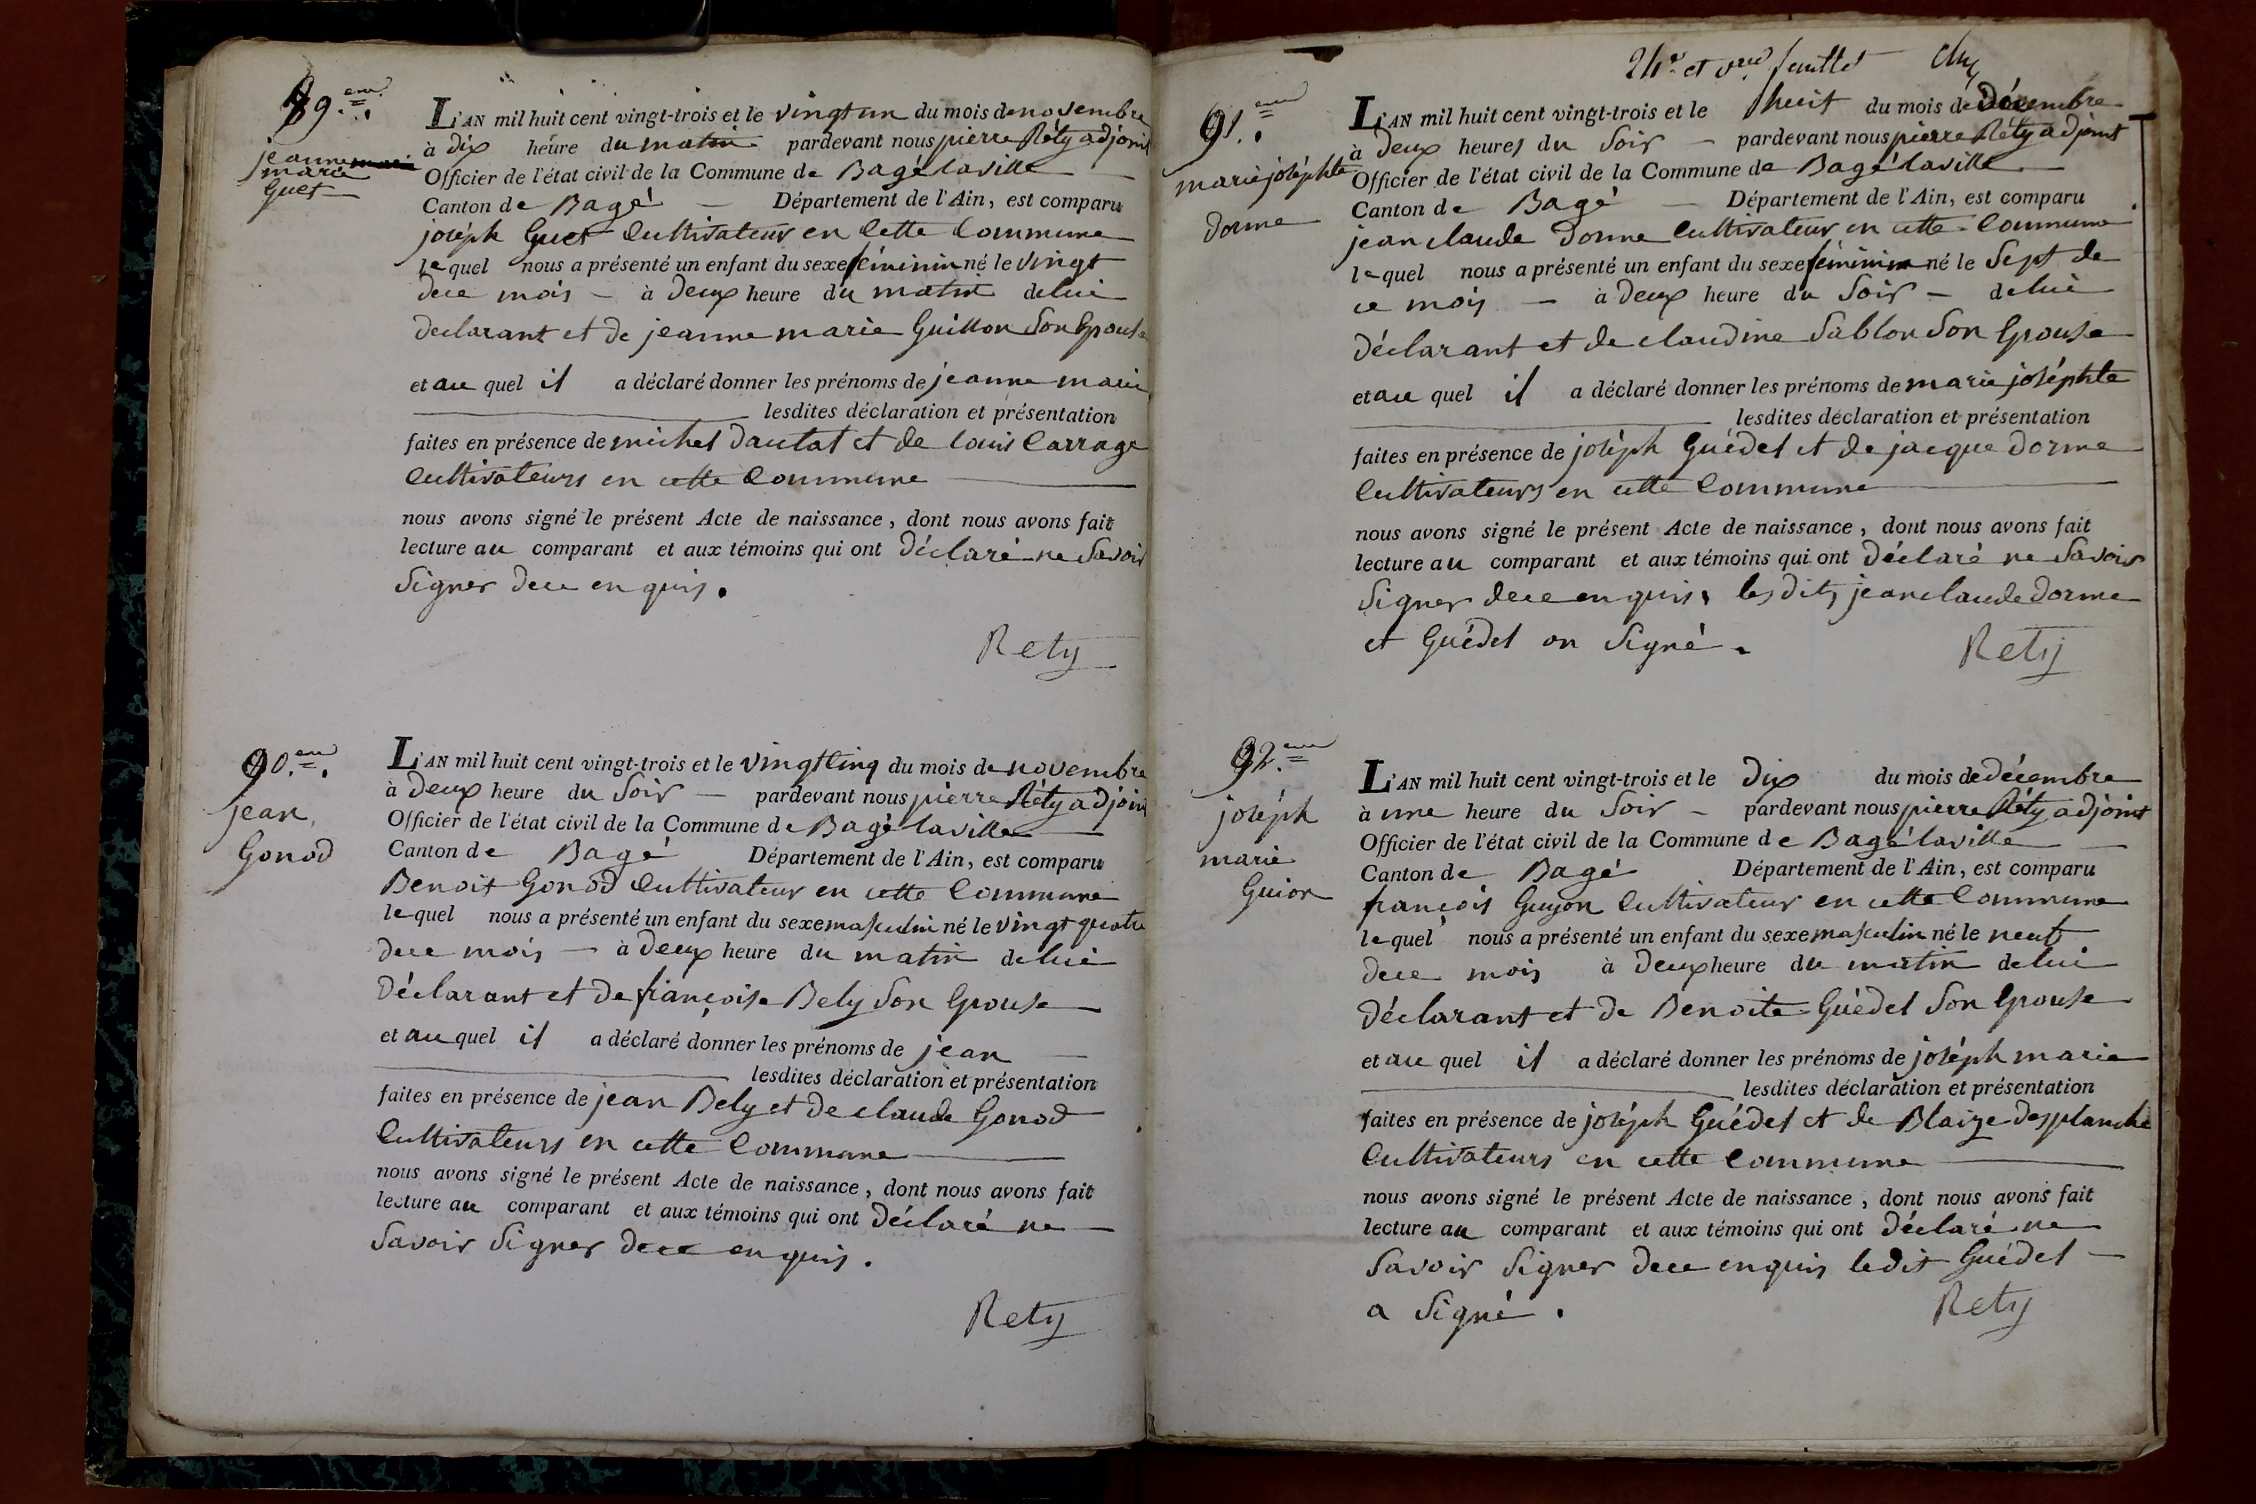 89.eme
jeanne
marie
Guet
L'AN mil huit cent vingt-trois et le vingt un du mois de novembre
à dix heure du matin pardevant nous pierre Réty adjoint
Officier de l'état civil de la Commune de Bagé laville
Canton de Bagé — Département de l'Ain, est comparu
joséph Guet Cultivateur en Cette Commune
lequel nous a présenté un enfant du sexe féminin né le vingt
dece mois — à deux heure du matin delui
declarant et de jeanne marie Guillon Son Epouse
et au quel il a déclaré donner les prénoms de jeanne marie
lesdites déclaration et présentation
faites en présence de michel dautat et de louis Carrage
Cultivateurs en cette Commune
nous avons signé le présent Acte de naissance, dont nous avons fait
lecture au comparant et aux témoins qui ont déclaré ne Savoir
Signer dece enquis.
Rety
90.eme
jean
Gonod
L'AN mil huit cent vingt-trois et le vingt Cinq du mois de novembre
à deux heure du Soir — pardevant nous pierre Réty adjoint
Officier de l'état civil de la Commune de Bagé laville
Canton de Bagé Département de l'Ain, est comparu
Benoit Gonod Cultivateur en cette Commune
lequel nous a présenté un enfant du sexe masculin né le vingt quatre
dece mois — à deux heure du matin delui
déclarant et de françoise Bely Son Epouse
et au quel il a déclaré donner les prénoms de jean
lesdites déclaration et présentation
faites en présence de jean Bely et de claude Gonod
Cultivateurs en cette Commune
nous avons signé le présent Acte de naissance, dont nous avons fait
lecture au comparant et aux témoins qui ont déclaré ne
Savoir Signer dece enquis.
Rety
24e et feuillet
91.eme
marie joséphte
dorme
L'AN mil huit cent vingt-trois et le huit du mois de Décembre
à deux heures du Soir — pardevant nous pierre Réty adjoint
Officier de l'état civil de la Commune de Bagé laville
Canton de Bagé — Département de l'Ain, est comparu
jean claude dorme Cultivateur en cette Commune
lequel nous a présenté un enfant du sexe féminin né le Sept de
ce mois — à deux heure du Soir — delui
déclarant et de claudine Sablon Son Epouse
et au quel il a déclaré donner les prénoms de marie joséphte
lesdites déclaration et présentation
faites en présence de joséph Guédel et de jacque dorme
Cultivateurs en cette Commune
nous avons signé le présent Acte de naissance, dont nous avons fait
lecture au comparant et aux témoins qui ont déclaré ne Savoir
Signer dece enquis, lesdits jean claude dorme
et Guédel on Signé.
Rety
92.eme
joséph
marie
Guion
L'AN mil huit cent vingt-trois et le dix du mois de décembre
à une heure du Soir — pardevant nous pierre Réty adjoint
Officier de l'état civil de la Commune de Bagé laville
Canton de Bagé Département de l'Ain, est comparu
françois Guyon Cultivateur en cette Commune
lequel nous a présenté un enfant du sexe masculin né le neuf
dece mois à deux heure du matin delui
déclarant et de Benoite Guédel Son Epouse
et au quel il a déclaré donner les prénoms de joséph marie
lesdites déclaration et présentation
faites en présence de joséph Guédel et de Blaize desplanche
Cultivateurs en cette Commune
nous avons signé le présent Acte de naissance, dont nous avons fait
lecture au comparant et aux témoins qui ont déclaré ne
Savoir Signer dece enquis ledit Guédel
a Signé.
Rety